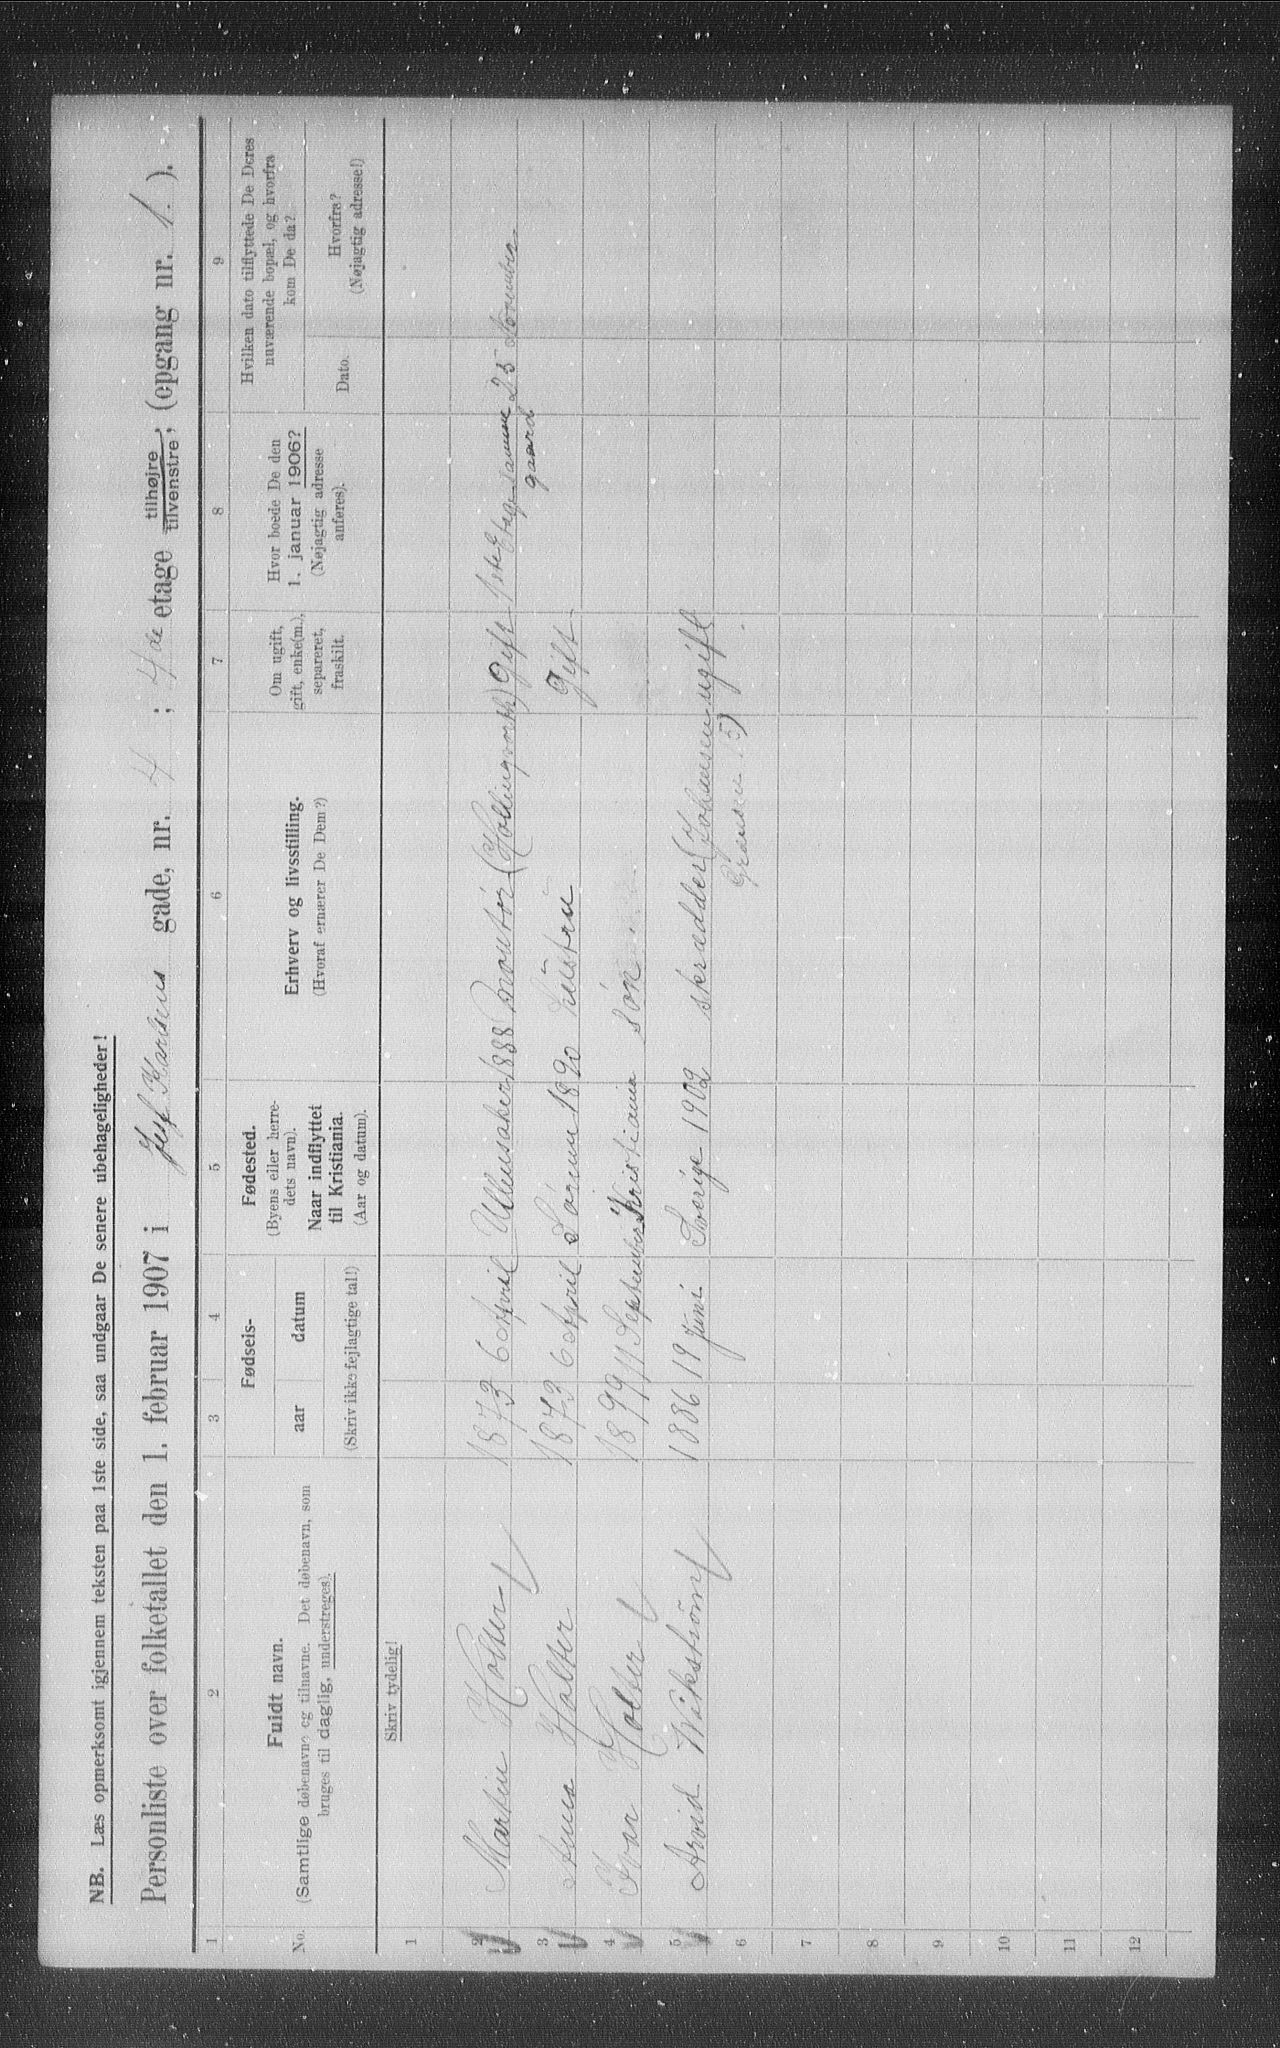 NB. Læs opmerksomt igjennem teksten paa 1ste side, saa undgaar De senere ubehageligheder!
Personliste over folketallet den 1. februar 1907 i Karlsens gade, nr. 4 ; 4de etage tilhøjre, tilvenstre; (opgang nr. 1. ).
1 2 3 4 5 6 7 8 9
No.
Fuldt navn.
(Samtlige døbenavne og tilnavne. Det døbenavn, som
bruges til daglig, understreges).
Fødsels-
aar datum
(Skriv ikke fejlagtige tal!)
Fødested.
(Byens eller herre-
dets navn).
Naar indflyttet
til Kristiania.
(Aar og datum).
Erhverv og livsstilling.
(Hvoraf ernærer De Dem?)
Om ugift,
gift, enke(m.),
separeret,
fraskilt.
Hvor boede De den
1. januar 1906?
(Nøjagtig adresse
anføres).
Hvilken dato tilflyttede De Deres
nuværende bopæl, og hvorfra
kom De da?
Dato.
Hvorfra?
(Nøjagtig adresse!)
Skriv tydelig!
1
2 Martin Holter 1873 6 April Ullensaker 1888 Montør (Hollingworth) Gift 1ste Etage samme 25 November
gaard
3 Anna Holter 1873 6 April Sörum 1890 Hüstru Gift
4 Ivar Holter 1899 11 September Kristiania Sön
5 Arvid Wikström 1886 19 Juni Sverige 1902 skrædder (Johansen ugift
Grænsen 5)
6
7
8
9
10
11
12